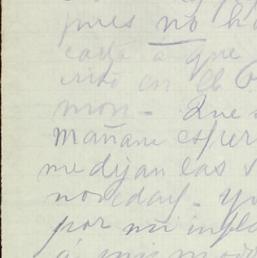 pues no h
carta a que
en el C
mon - Que
Mañana esper
me dijan las s
novedad - Yo
por mi infl
á mis mo